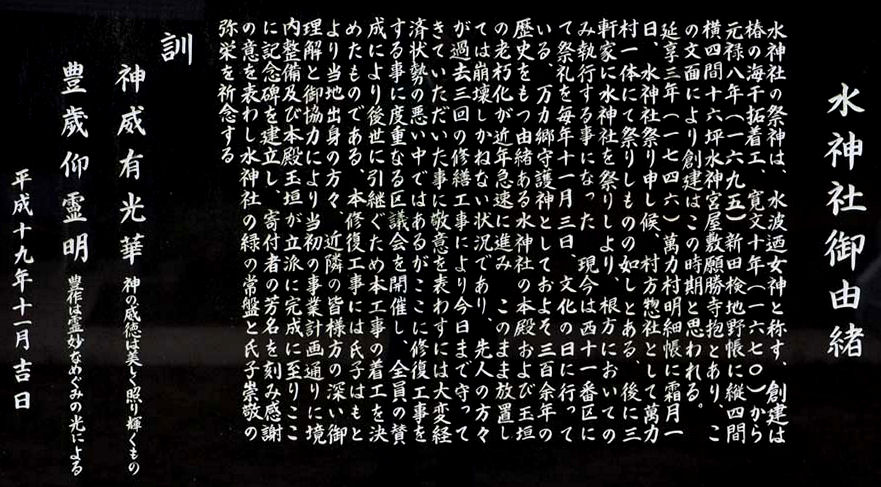 水神社御由緒
水神社の祭神は、水波迺女神と称す、創建は
椿の海干拓着工、寛文十年(一六七〇)から
元禄八年(一六九五)新田検地野帳に縦四間
横四間十六坪水神宮屋敷願勝寺抱とあり、こ
の文面により創建はこの時期と思われる。
延享三年(一七四六)萬力村明細帳に霜月一
日、水神社祭り申し候、村方惣社として萬力
村一体にて祭りしものの如しとある、後に三
軒家に水神社を祭りしより、根方においての
み執行する事になった 現今は西十一番区に
て祭礼を毎年十一月三日、文化の日に行って
いる、万力郷守護神としておよそ三百余年の
歴史をもつ由緒ある水神社の本殿および玉垣
の老朽化が近年急速に進み このまま放置し
ては崩壊しかねない状況であり、先人の方々
が過去三回の修繕工事により今日まで守って
きていただいた事に敬意を表わすには大変経
済状勢の悪い中ではあるがここに修復工事を
する事に度重なる区議会を開催し、全員の賛
成により後世に引継ぐため本工事の着工を決
めたものである、本修復工事には氏子はもと
より当地出身の方々、近隣の皆様方の深い御
理解と御協力により当初の事業計画通りに境
内整備及び本殿玉垣が立派に完成に至りここ
に記念碑を建立し、寄付者の芳名を刻み感謝
の意を表わし水神社の緑の常盤と氏子崇敬の
弥栄を祈念する
訓
神威有光華 神の威徳は美しく照り輝くもの
豊歳仰霊明 豊作は霊妙なめぐみの光による
平成十九年十一月吉日